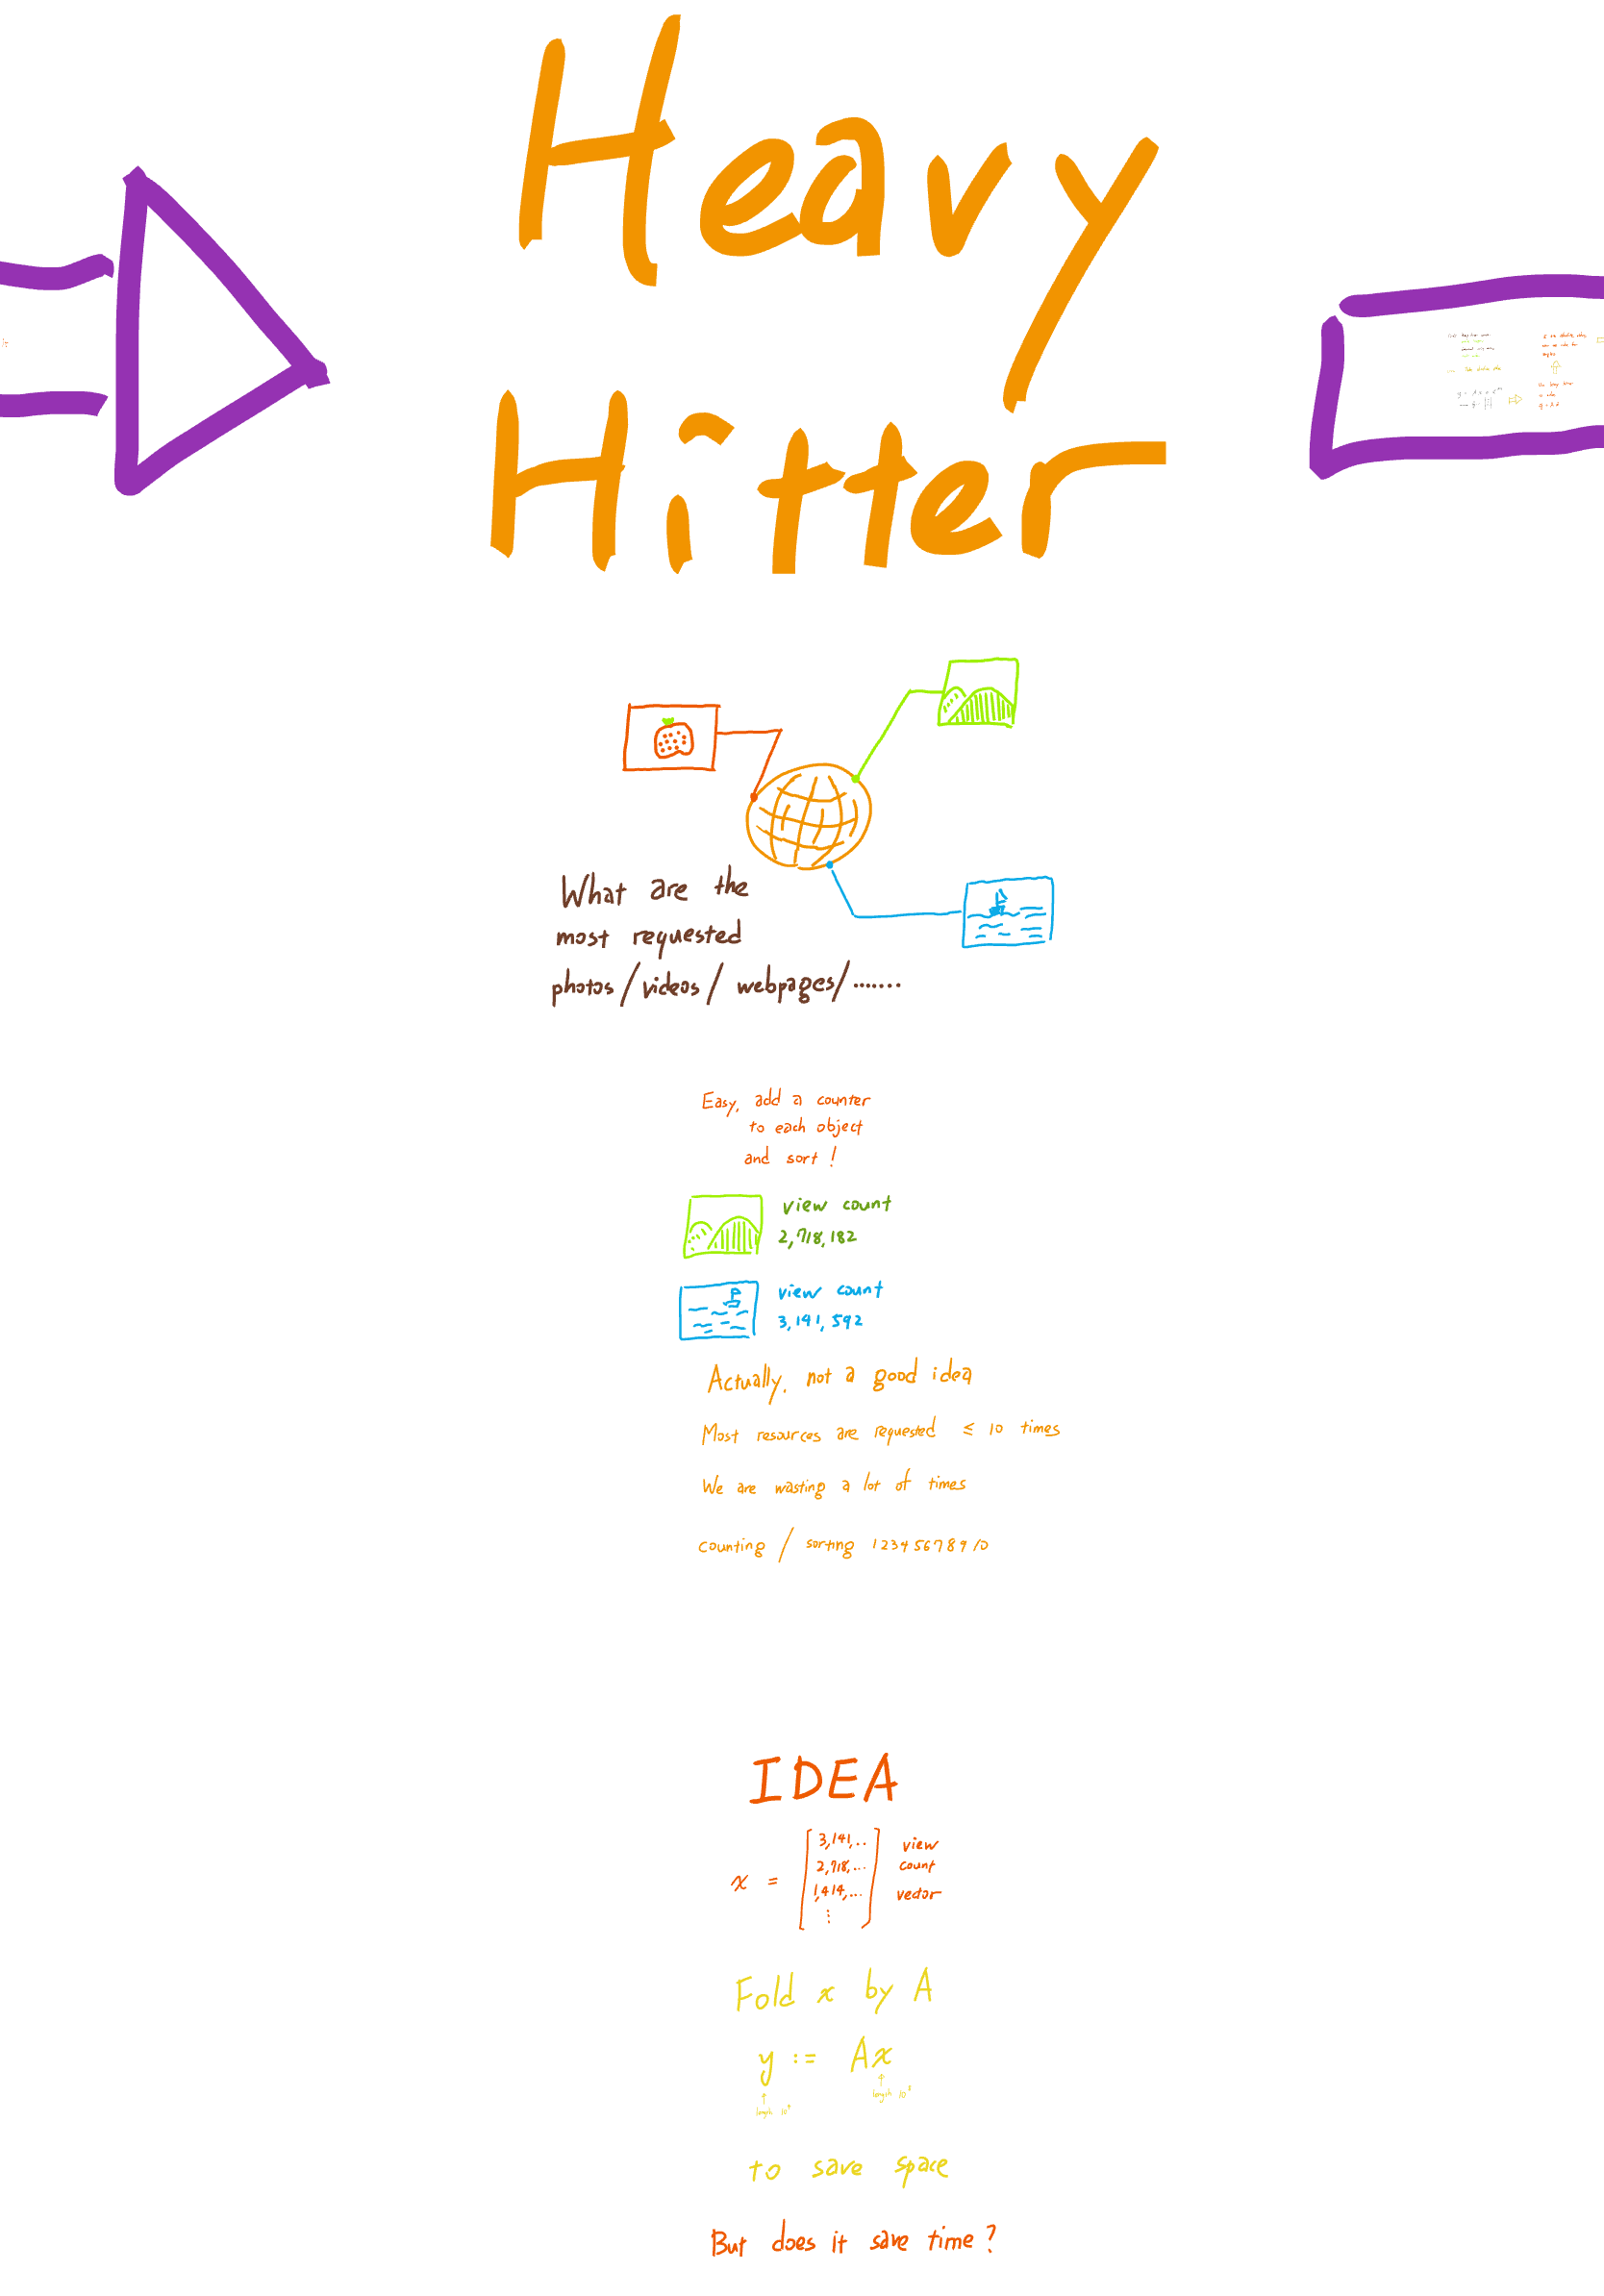 Heavy
Hitter
What are the
most requested
photos/videos/webpages/.......
Easy, add a counter
to each object
and sort!
view count
2,718,182
view count
3,141,592
Actually, not a good idea
Most resources are requested ≤ 10 times
We are wasting a lot of times
counting / sorting 1 2 3 4 5 6 7 8 9 10
IDEA
x = [3,141,.. 2,718,... 1,414,... ⋮] view count vector
Fold x by A
y := Ax
length
length
to save space
But does it save time?